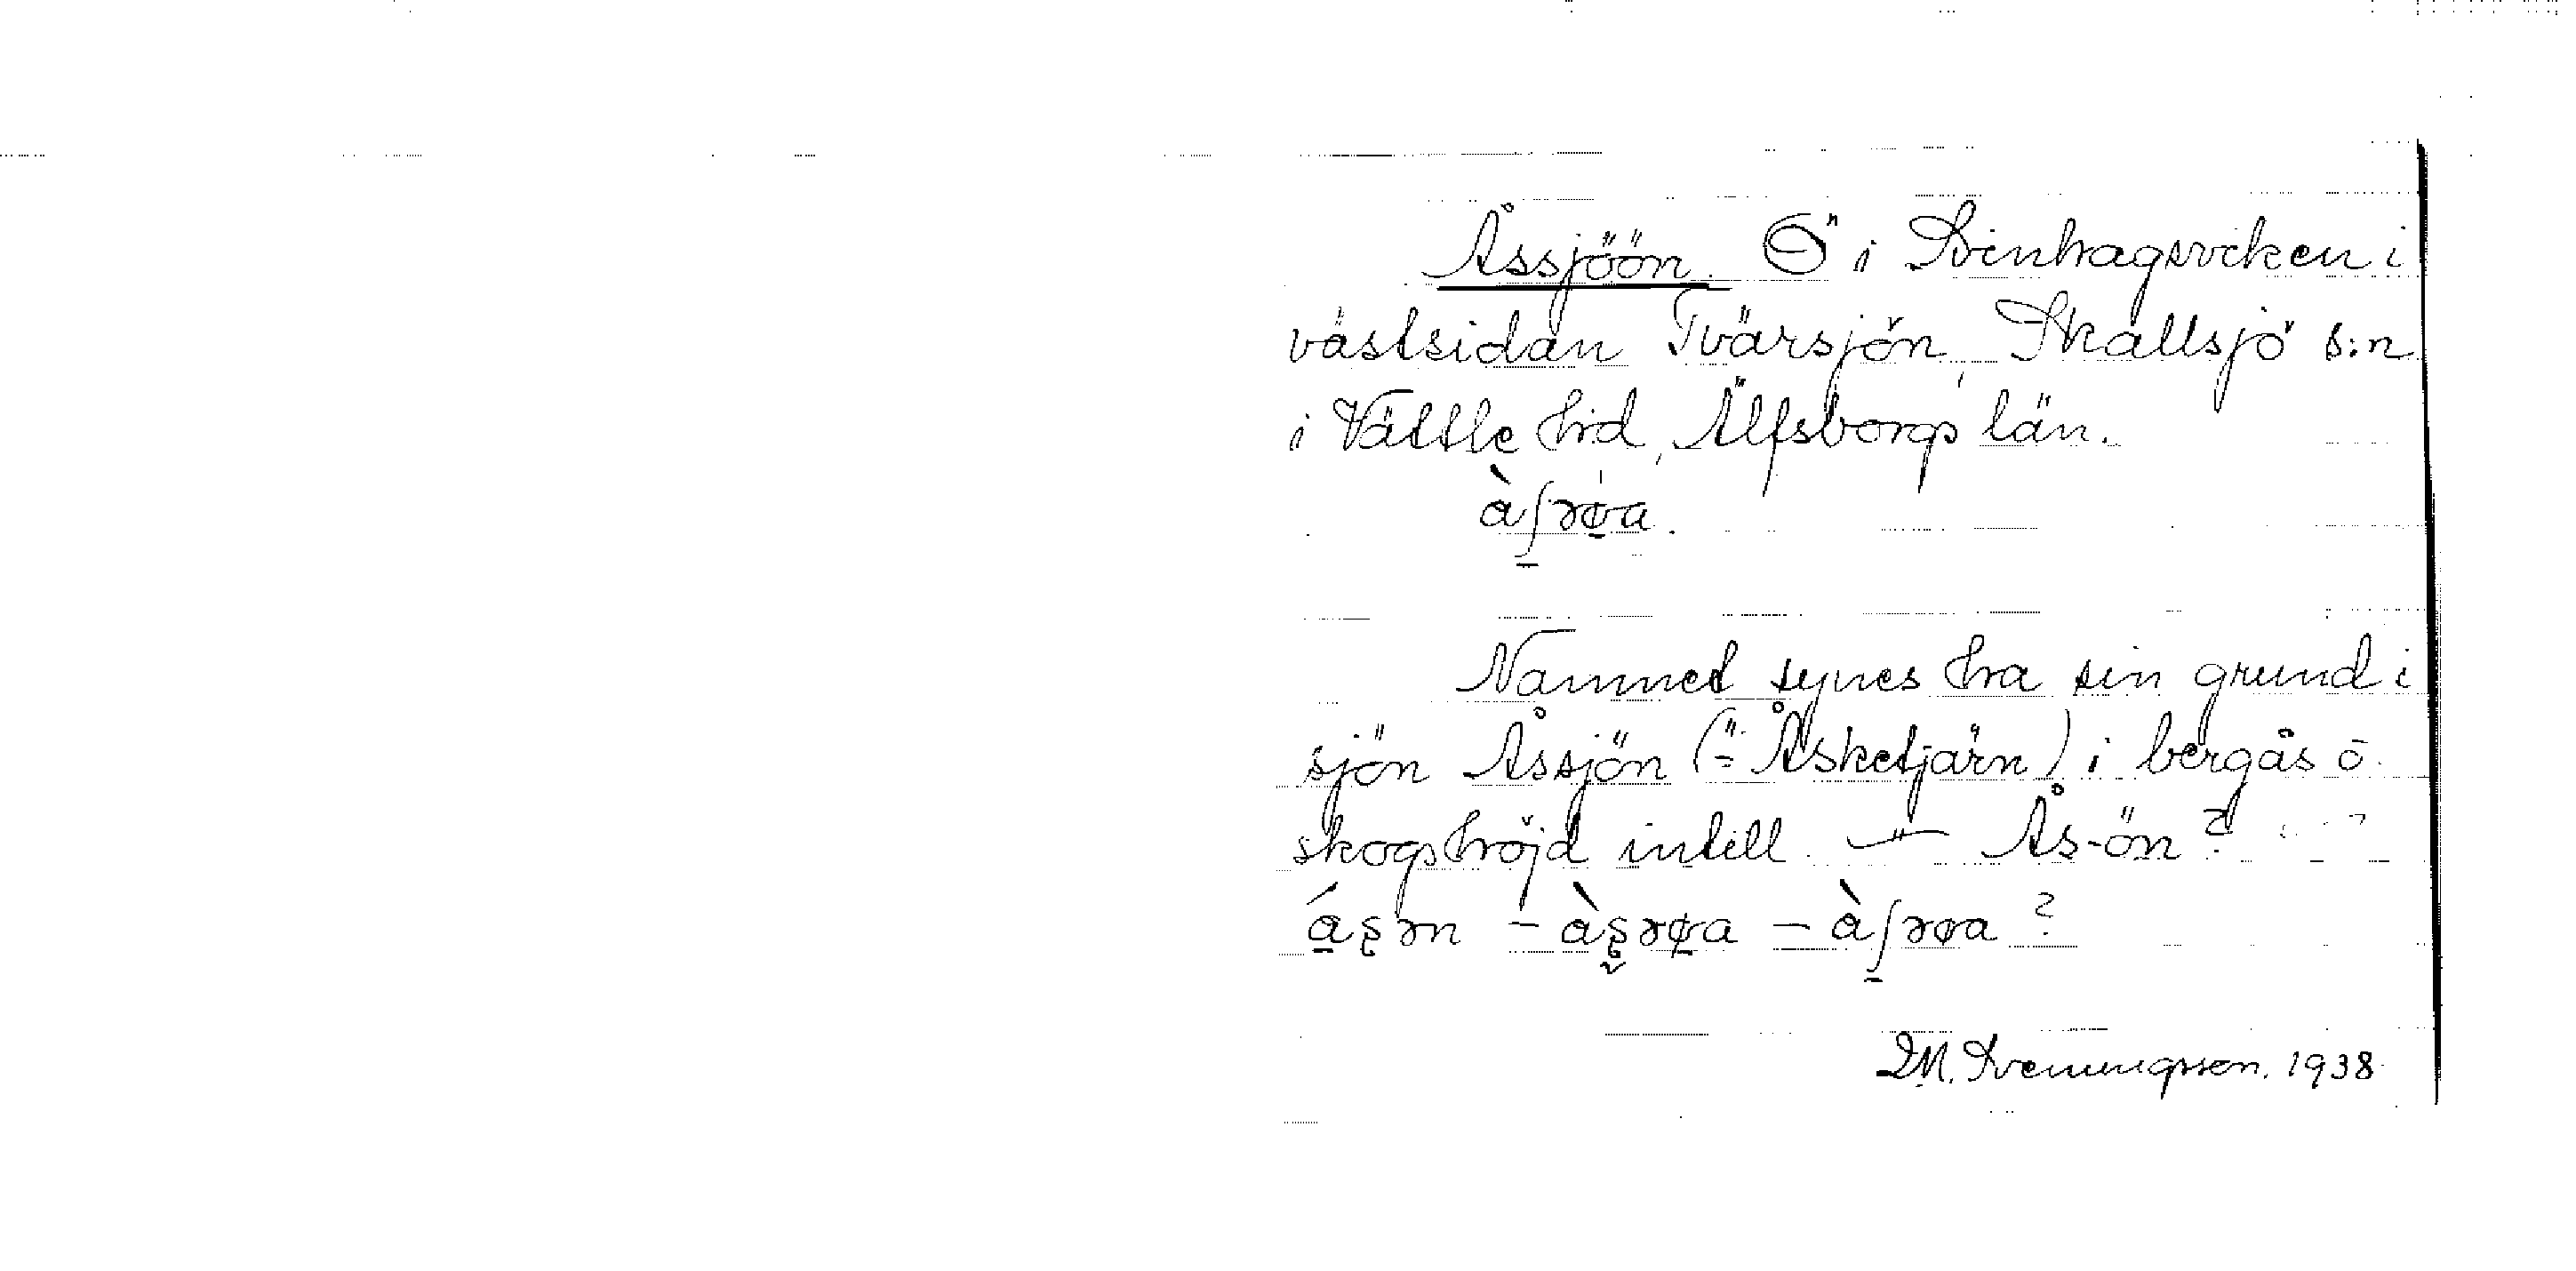 Åssjöön. Ö i Svinhagsviken i
västsidan Tvärsjön, Skallsjö s:n
i Vättle hd, Älfsborgs län.
Namnet synes ha sin grund i
sjön Åssjön (= Åsketjärn) i bergås o.
skogshöjd intill. — Ås-ön?
D.M. Svenungsson. 1938